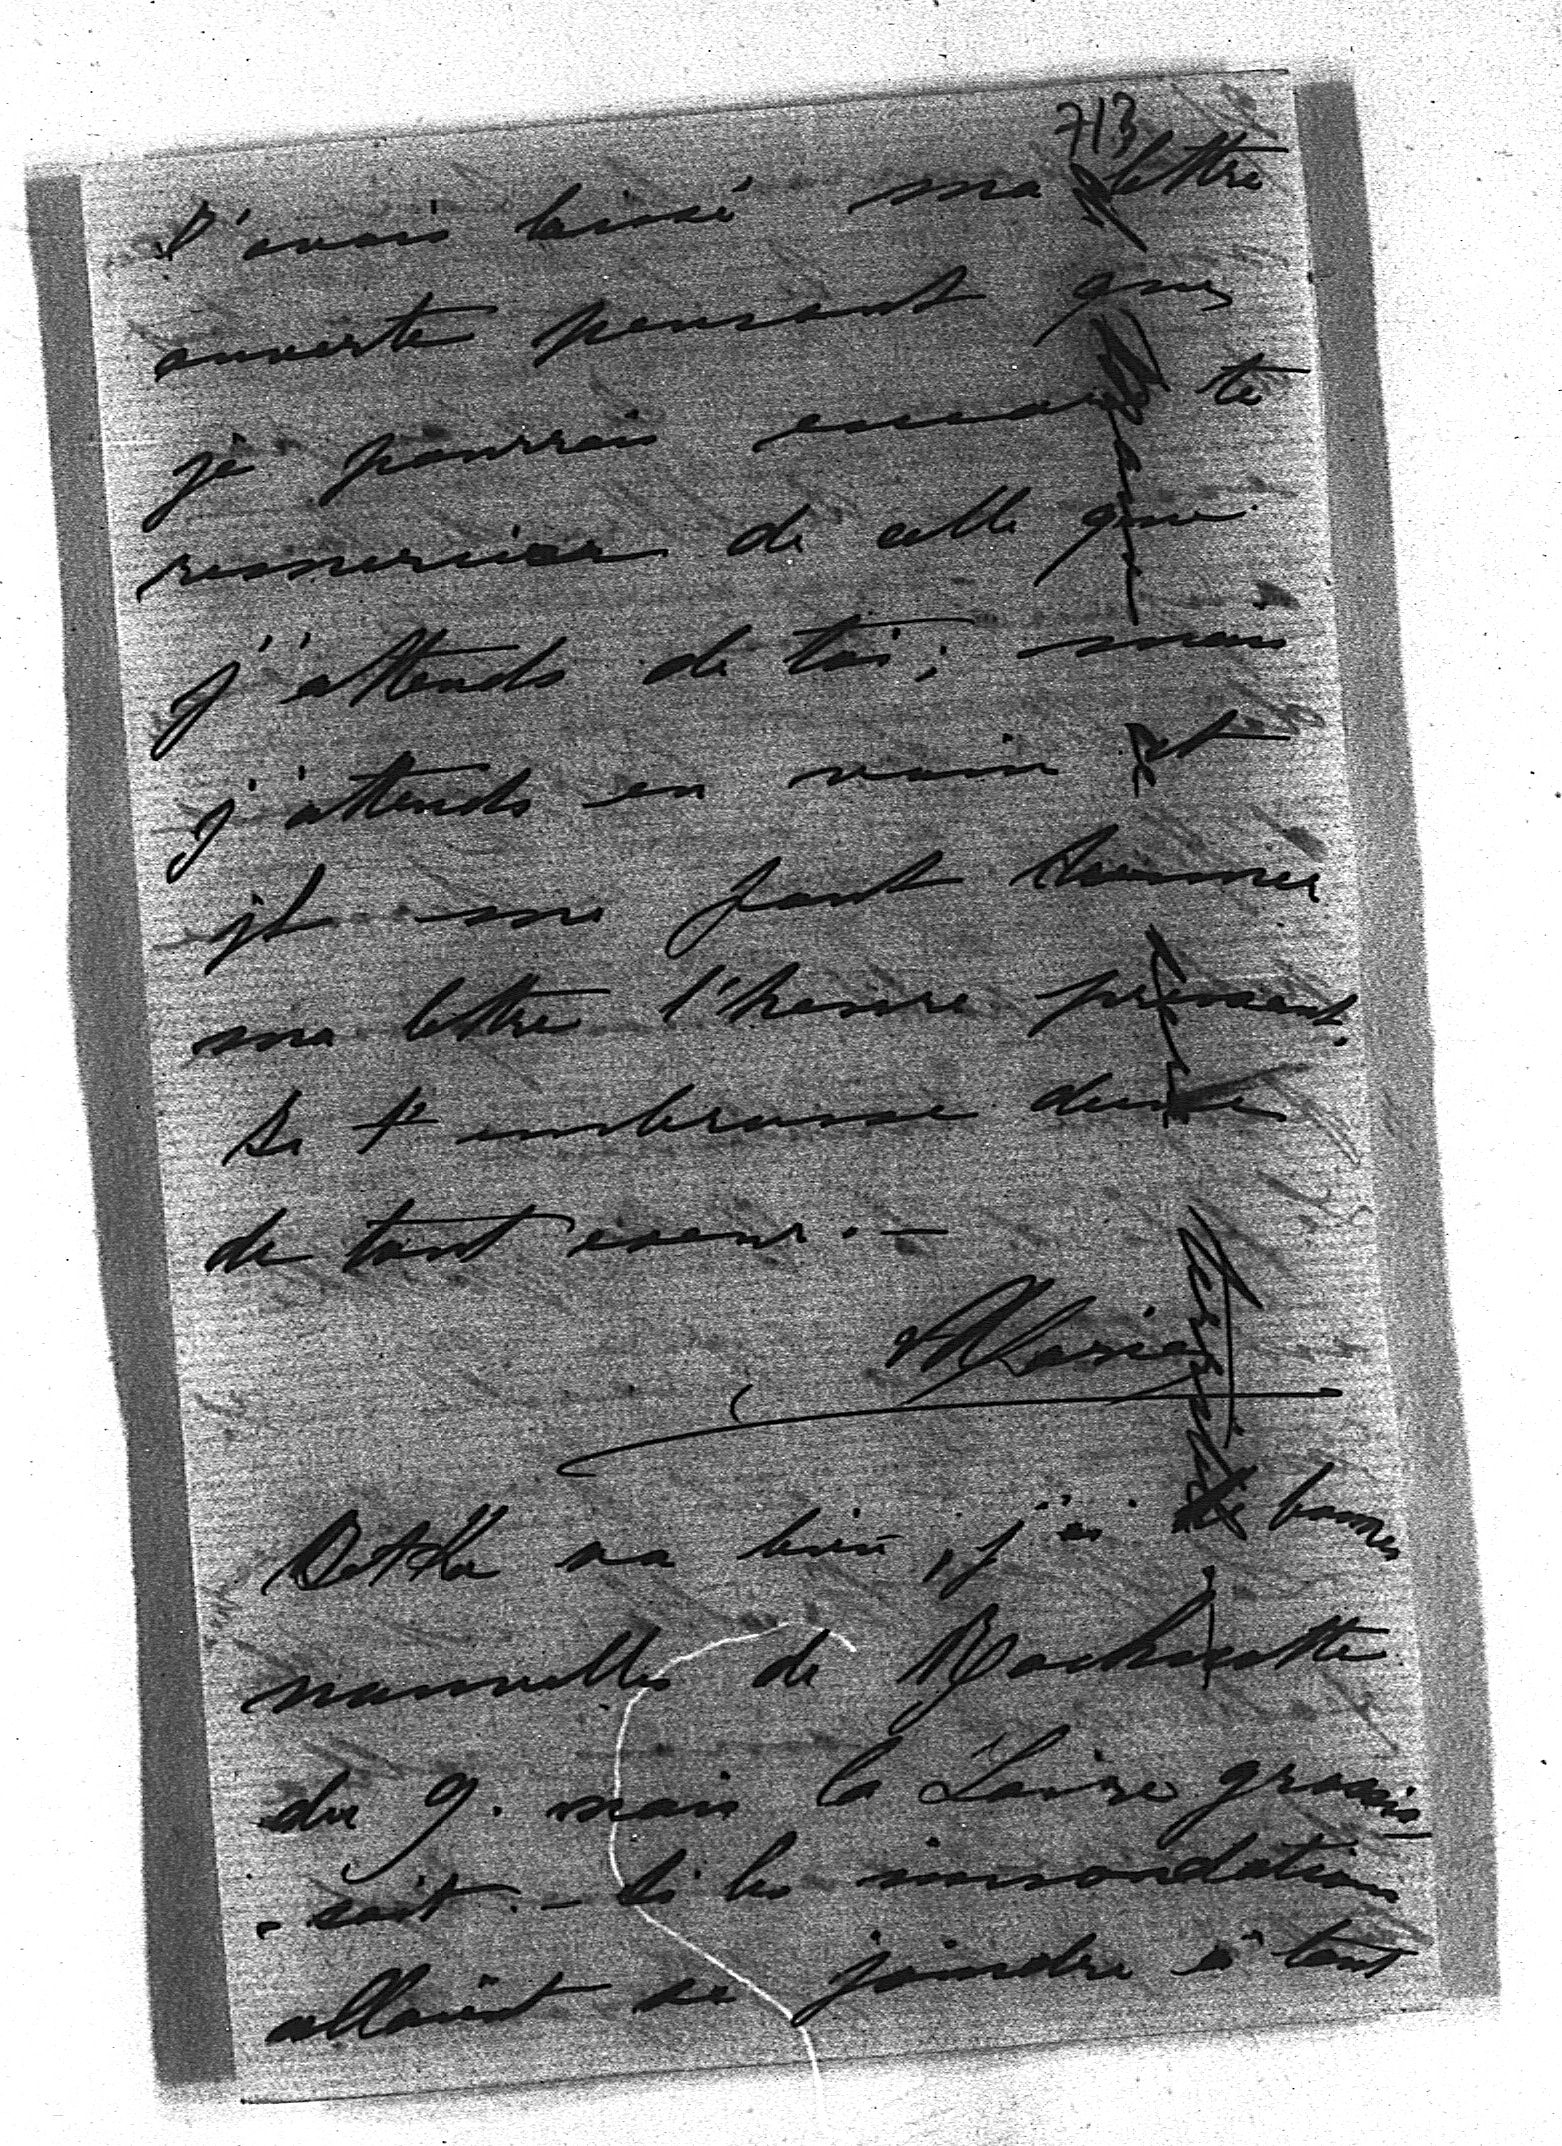 713
J'avais laissé ma lettre
ouverte pensant que
je pourrais encore te
remercier de celle que
j'attends de toi; mais
j'attends en vain et
il me faut donner
ma lettre l'heure pressant.
Je t'embrasse
de tout coeur. —
Marie
va bien, j'ai de bonnes
nouvelles de Rochecotte
du 9. mais la Loire grossis
-sait. — Si les innondations
allaient se joindre à tant